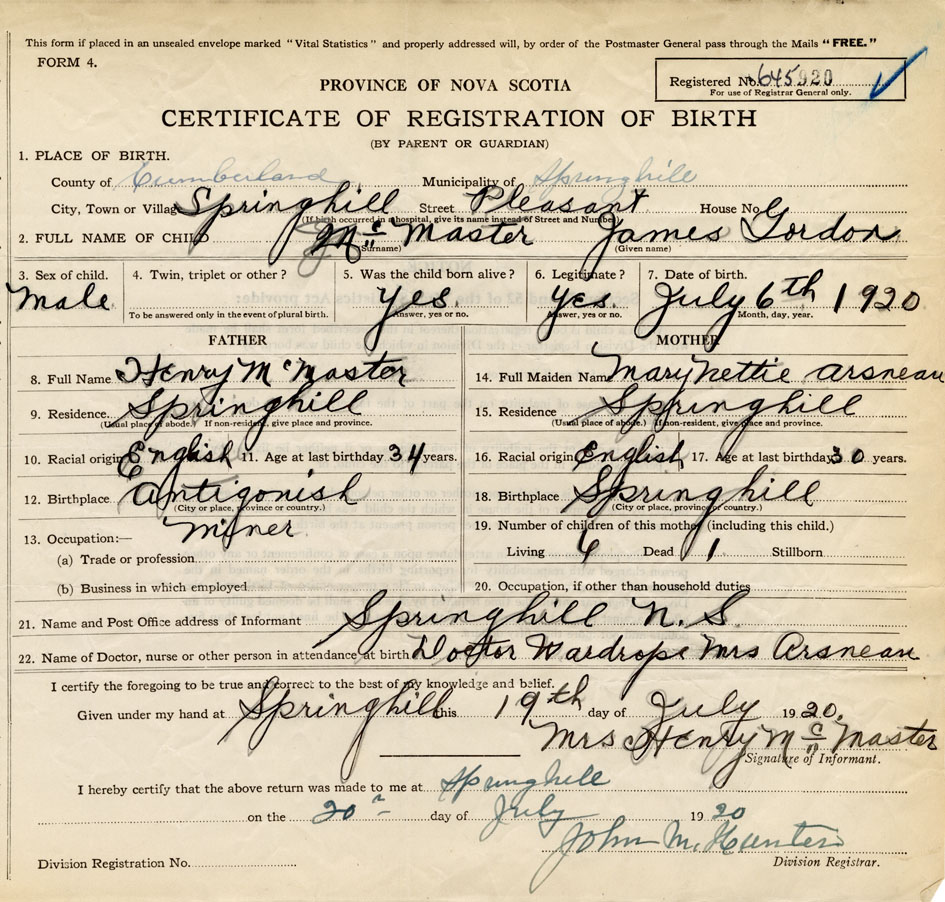 This form if placed in an unsealed envelope marked "Vital Statistics" and properly addressed will, by order of the Postmaster General pass through the Mails "FREE."
FORM 4.
Registered No. 645920
For use of Registrar General only.
PROVINCE OF NOVA SCOTIA
CERTIFICATE OF REGISTRATION OF BIRTH
(BY PARENT OR GUARDIAN)
1. PLACE OF BIRTH.
County of Cumberland Municipality of Springhill
City, Town or Village Springhill Street Pleasant House No.
(If birth occurred in a hospital, give its name instead of Street and Number)
2. FULL NAME OF CHILD Mc Master James Gordon
(Surname) (Given name)
3. Sex of child. 4. Twin, triplet or other? 5. Was the child born alive? 6. Legitimate? 7. Date of birth.
Male Yes. Yes. July 6th 1920
To be answered only in the event of plural birth. Answer, yes or no. Answer, yes or no. Month, day, year.
FATHER MOTHER
8. Full Name Henry Mc Master 14. Full Maiden Name Mary Nettie Arsneau
9. Residence. Springhill 15. Residence Springhill
(Usual place of abode.) If non-resident, give place and province. (Usual place of abode.) If non-resident, give place and province.
10. Racial origin English 11. Age at last birthday 34 years. 16. Racial origin English 17. Age at last birthday 30 years.
12. Birthplace Antigonish 18. Birthplace Springhill
(City or place, province or country.) (City or place, province or country.)
13. Occupation:— Miner 19. Number of children of this mother (including this child.)
(a) Trade or profession Living 4 Dead 1 Stillborn
(b) Business in which employed 20. Occupation, if other than household duties
21. Name and Post Office address of Informant Springhill N.S.
22. Name of Doctor, nurse or other person in attendance at birth Doctor Wardrope Mrs Arsneau
I certify the foregoing to be true and correct to the best of my knowledge and belief.
Given under my hand at Springhill this 19th day of July 1920.
Mrs Henry Mc Master
Signature of Informant.
I hereby certify that the above return was made to me at Springhill
on the 20 day of July 1920
John M. Hunter
Division Registration No. Division Registrar.